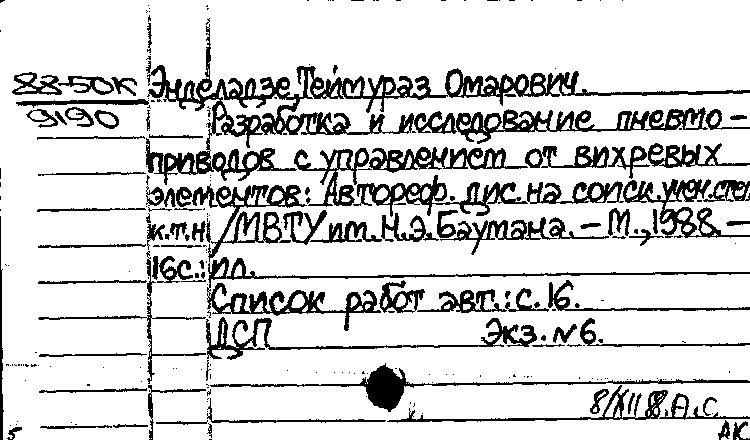 88-50К Энделадзе, Теймураз Омарович.
9190 Разработка и исследование пневмо-
приводов с управлением от вихревых
элементов: Автореф. дис. на соиск. учен. степ
к.т.н /МВТУ им. Н.Э. Баумана. – М., 1988. –
16с.: ил.
Список работ авт.: с. 16.
ДСП Экз. N 6.
8/XII 88. А.С.
5 АК